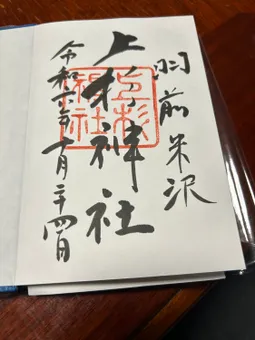 羽前米沢
上杉神社
上杉
神社
令和六年十月二十四日